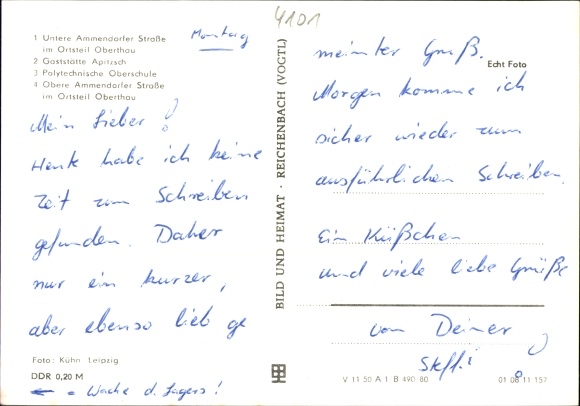 4101
1 Untere Ammendorfer Straße
im Ortsteil Oberthau
2 Gaststätte Apitzsch
3 Polytechnische Oberschule
4 Obere Ammendorfer Straße
im Ortsteil Oberthau
Montag
Mein Lieber!
Heute habe ich keine
Zeit zum Schreiben
gefunden. Daher
nur ein kurzer,
aber ebenso lieb ge
Foto: Kühn Leipzig
DDR 0,20 M
← = Wache d. Lagers!
BILD UND HEIMAT · REICHENBACH (VOGTL)
meinter Gruß.
Echt Foto
Morgen komme ich
sicher wieder zum
ausführlichen Schreiben.
Ein Küßchen
und viele liebe Grüße
von Deiner
Steffi
V 11 50 A 1 B 490/80
01 08 11 157